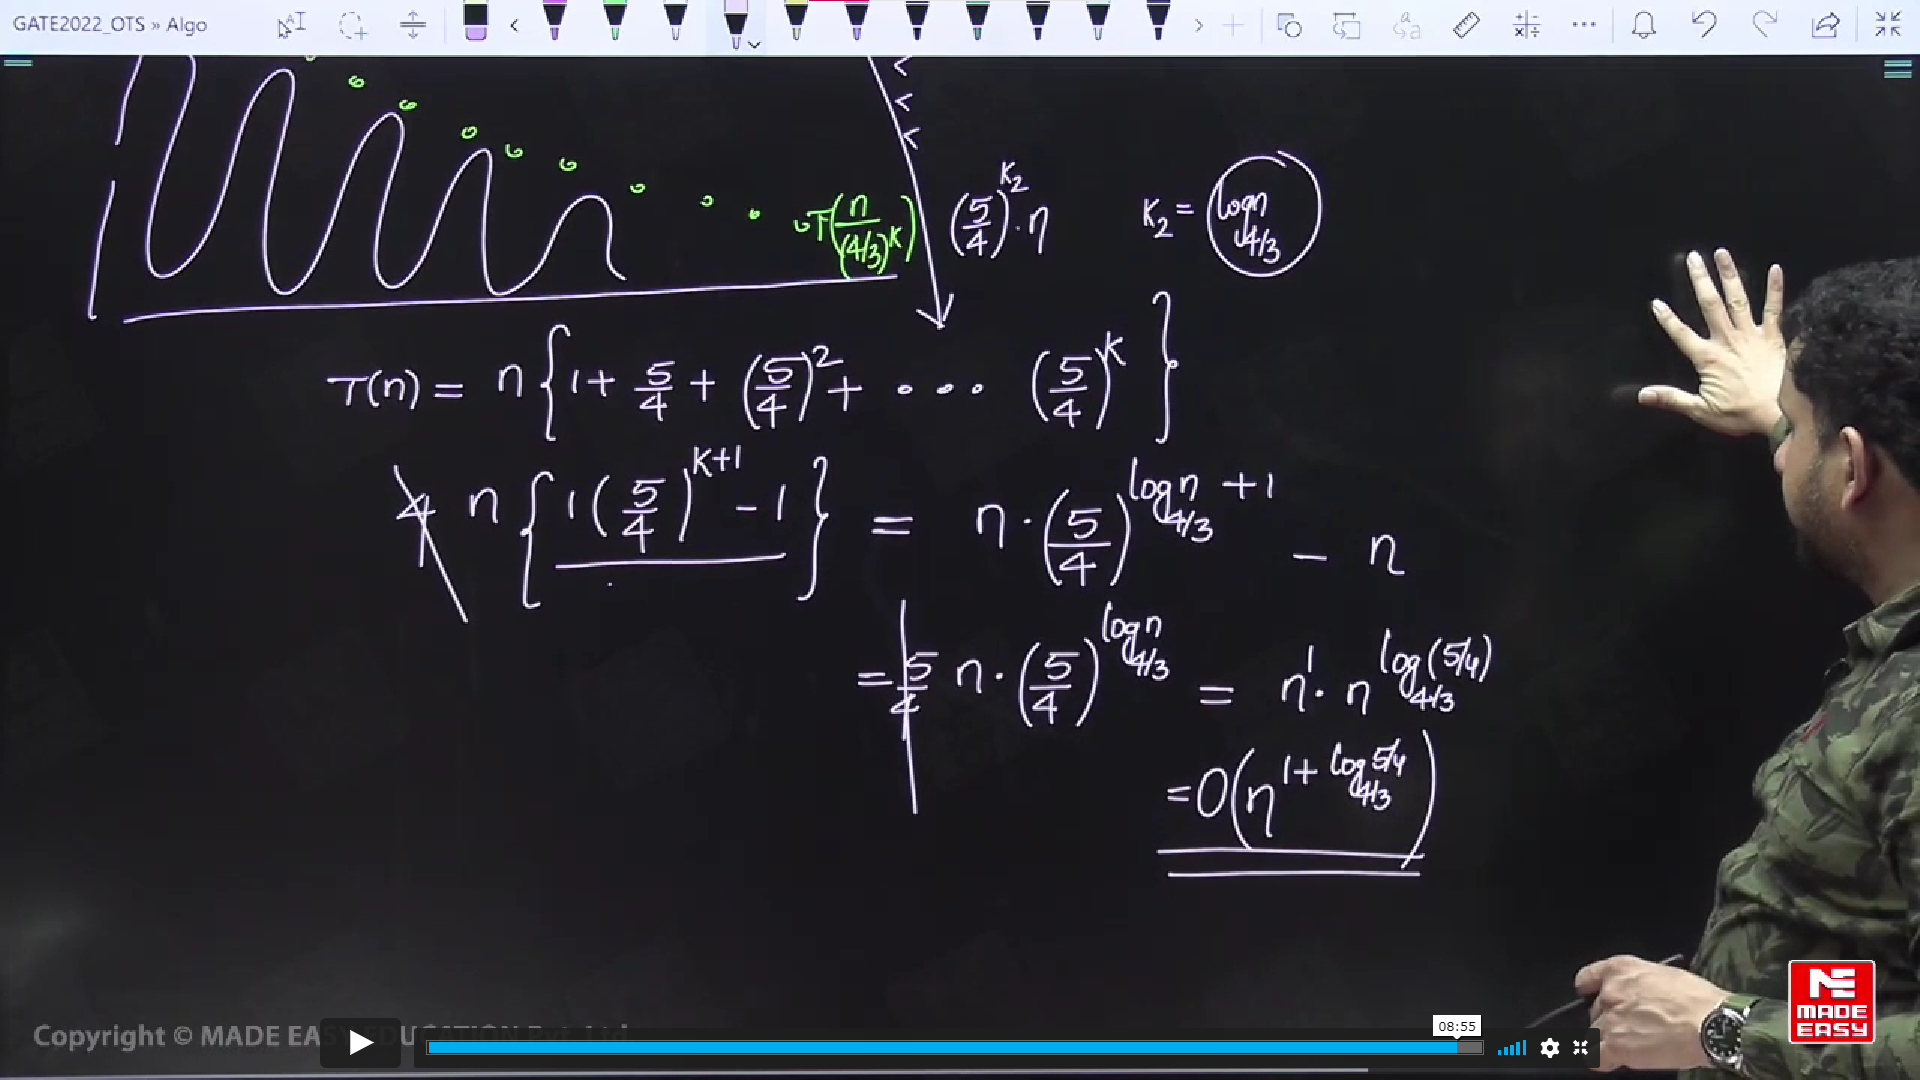 GATE2022_OTS » Algo
T(n/(4/3)^k) (5/4)^k₂ · n K₂ = log_{4/3} n
T(n) = n { 1 + 5/4 + (5/4)² + • • • (5/4)^k }
4 n { 1 (5/4)^{k+1} - 1 } = n · (5/4)^{log_{4/3} n + 1} - n
= 5/4 n · (5/4)^{log_{4/3} n} = n¹ · n^{log_{4/3} (5/4)}
= O(n^{1 + log_{4/3} 5/4})
MADE
EASY
08:55
Copyright © MADE EASY EDUCATION Pvt. Ltd